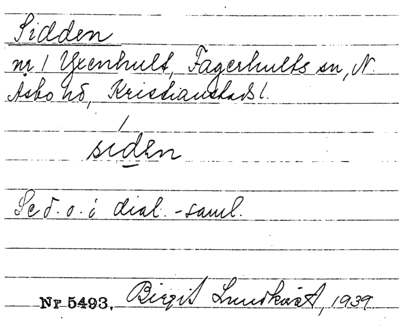 Sidden
nr 1 Yxenhult, Fagerhults sn, N.
Åsbo hd, Kristianstads l.
síden
Se d. o. i dial.-saml.
Nr 5493. Birgit Lundkvist, 1939